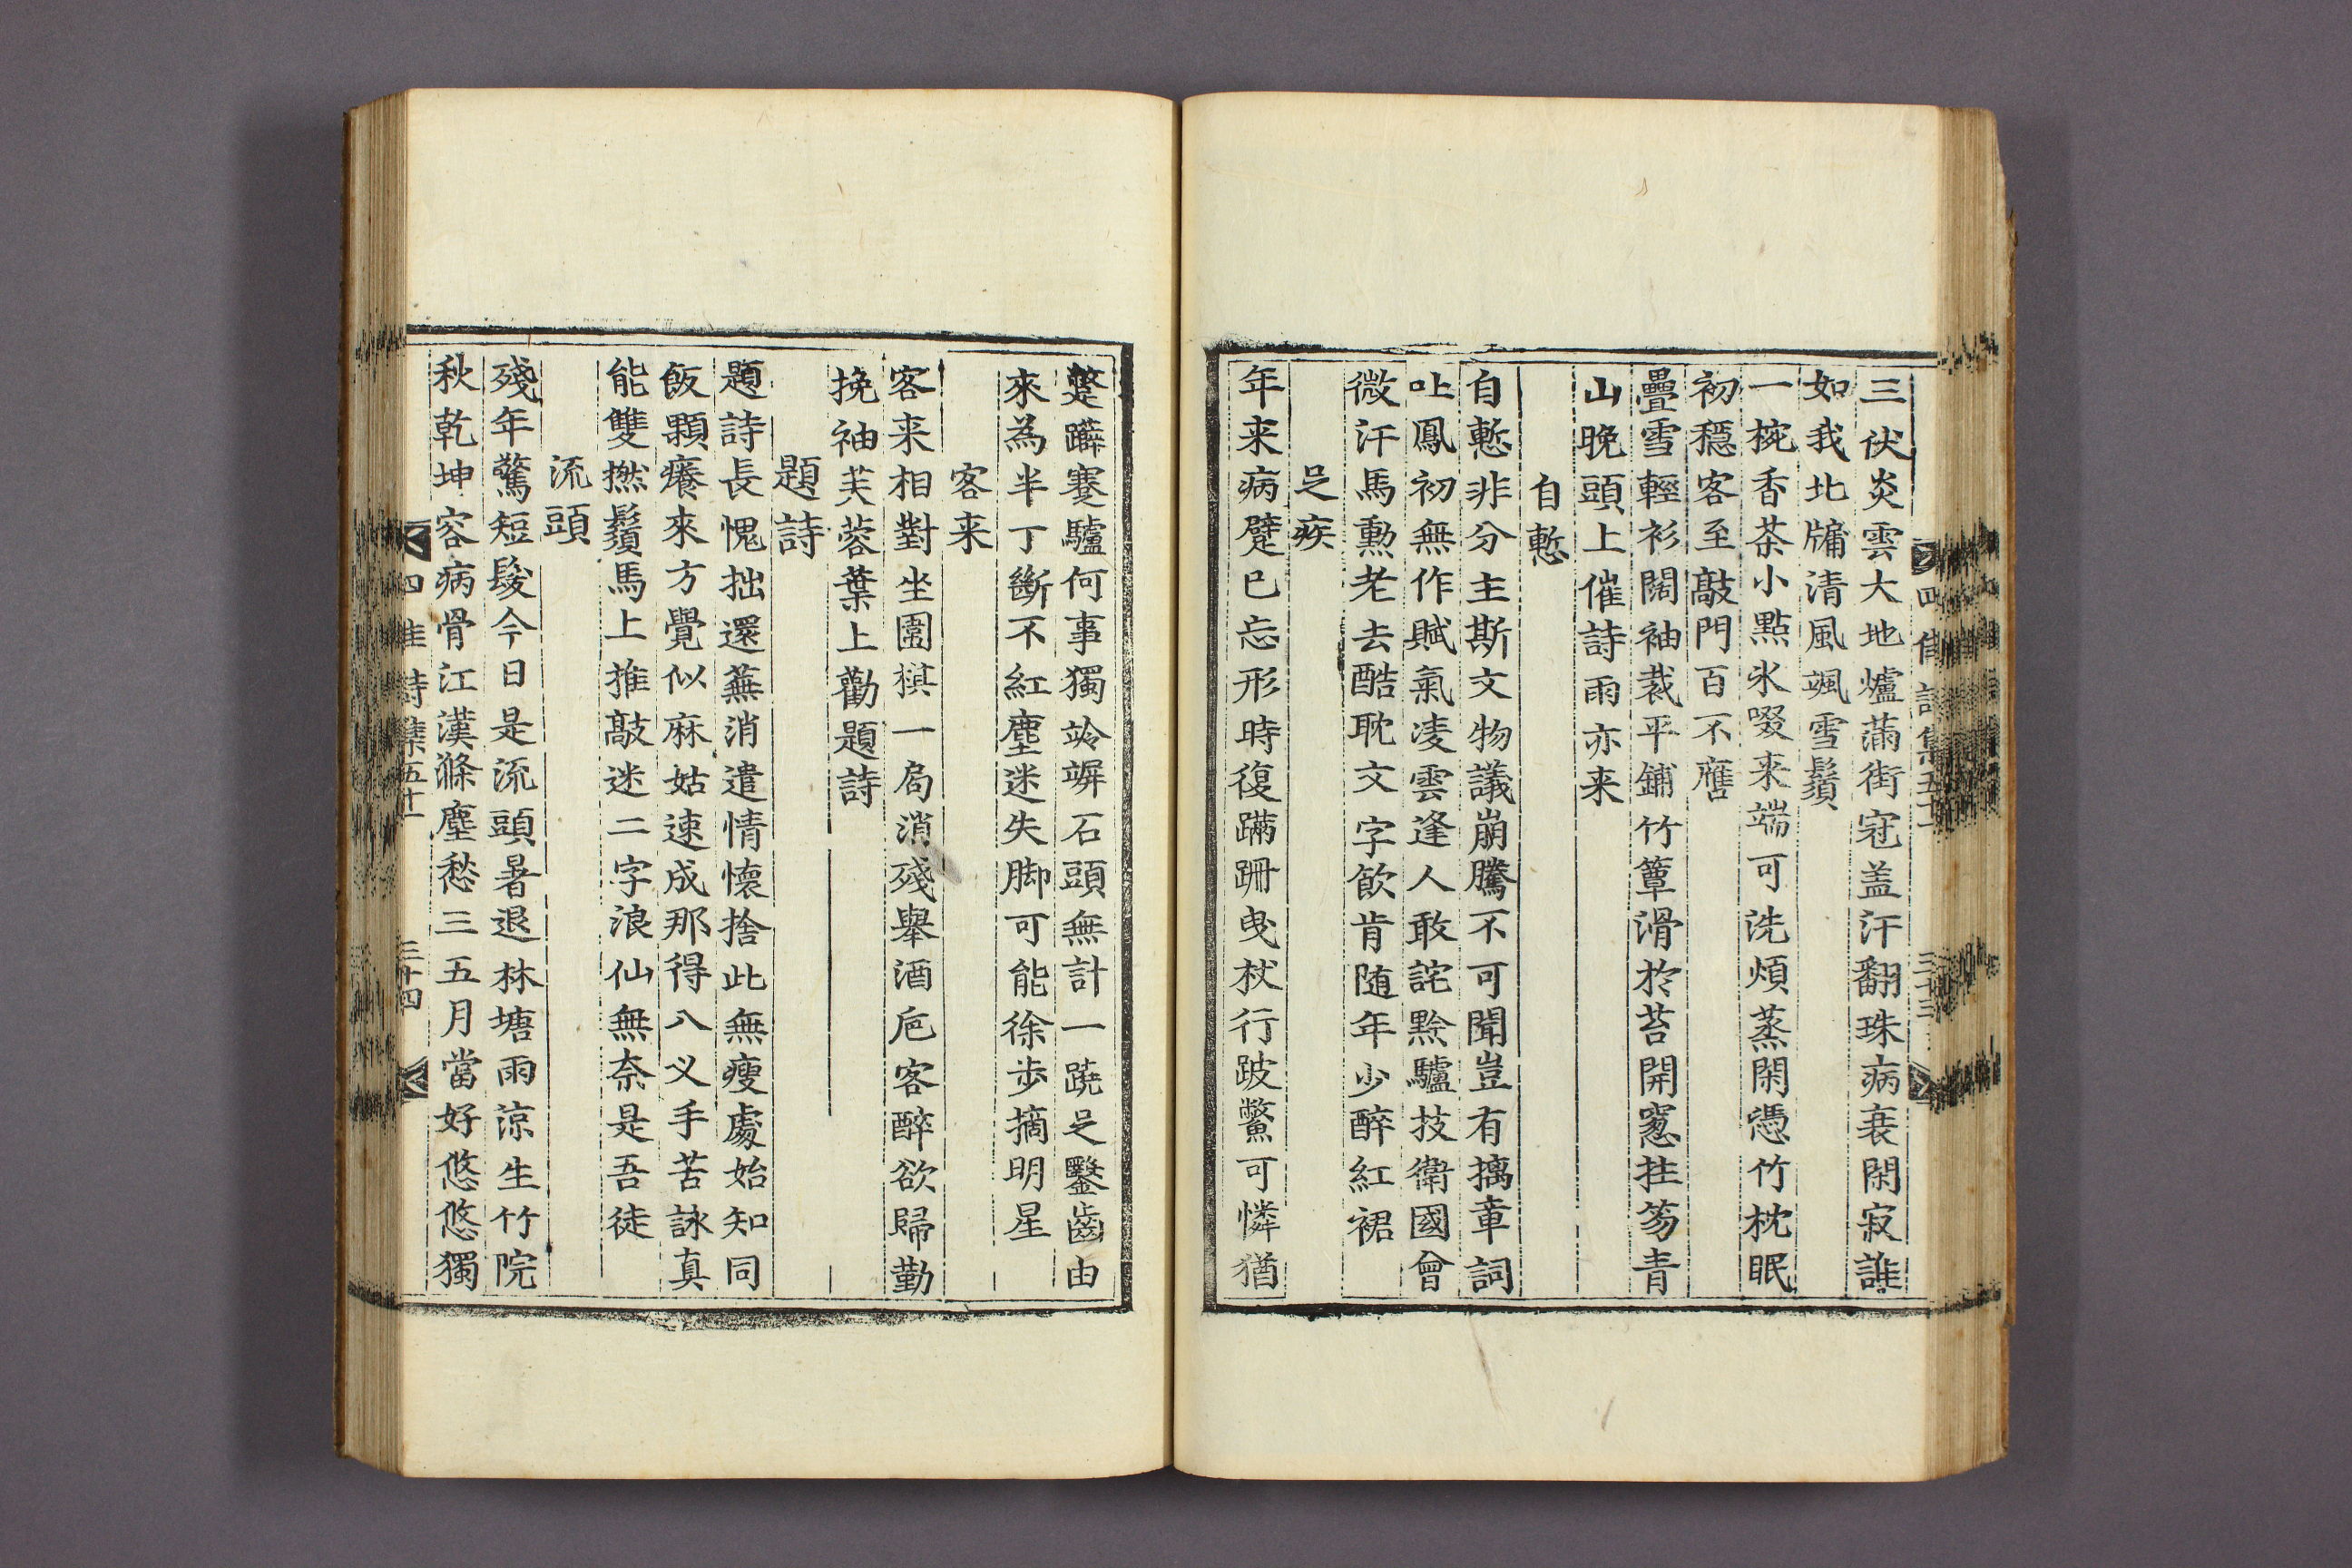 三伏炎雲大地爐滿街冠盖汗翻珠病衰閑寂誰
如我北牖清風颯雪鬚
一椀香茶小點氷啜来端可洗煩蒸閑憑竹枕眠
初穩客至敲門百不譍
疊雪輕衫闊袖裁平鋪竹簟滑於苔開窓拄笏青
山晚頭上催詩雨亦来
自慙
自慙非分主斯文物議崩騰不可聞豈有摛章詞
吐鳳初無作賦氣凌雲逢人敢詫黔驢技衛國曾
微汗馬勲老去酷耽文字飮肯随年少醉紅裙
足疾
年来病躄已忘形時復蹣跚曳杖行跛鱉可憐猶
蹩躠蹇驢何事獨竛竮石頭無計一蹺足鑿齒由
來為半丁斷不紅塵迷失脚可能徐步摘明星
客来
客来相對坐圍棋一局消殘舉酒巵客醉欲歸勤
挽袖芙蓉葉上勸題詩
題詩
題詩長愧拙還蕪消遣情懷捨此無瘦處始知同
飯顆癢來方覺似麻姑速成那得八义手苦詠真
能雙撚鬚馬上推敲迷二字浪仙無奈是吾徒
流頭
殘年驚短髮今日是流頭暑退林塘雨涼生竹院
秋乾坤容病骨江漢滌塵愁三五月當好悠悠獨
四佳詩集五十 三十四